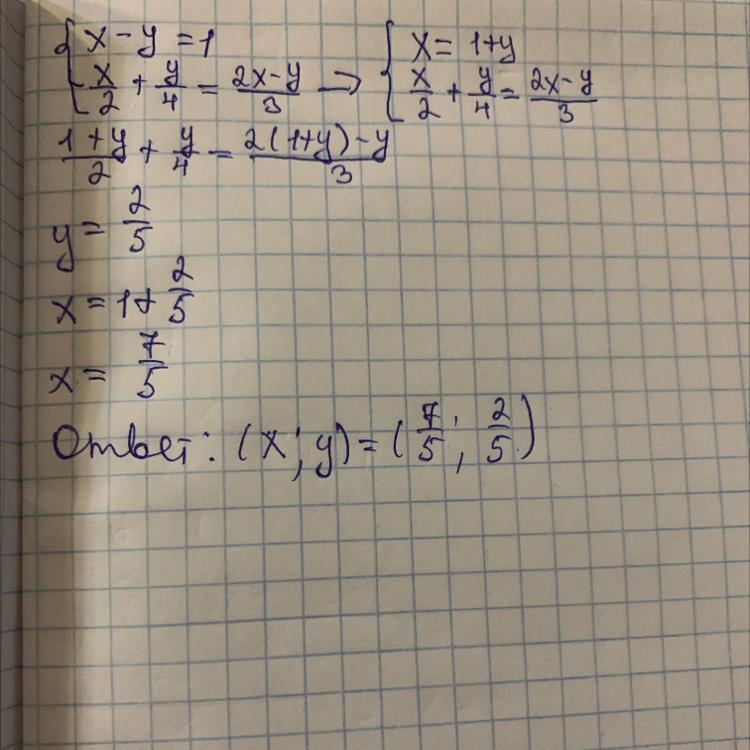 { x - y = 1
x/2 + y/4 = (2x - y)/3 → { x = 1 + y
x/2 + y/4 = (2x - y)/3
(1 + y)/2 + y/4 = (2(1 + y) - y)/3
y = 2/5
x = 1 + 2/5
x = 7/5
Ответ: (x; y) = (7/5; 2/5)